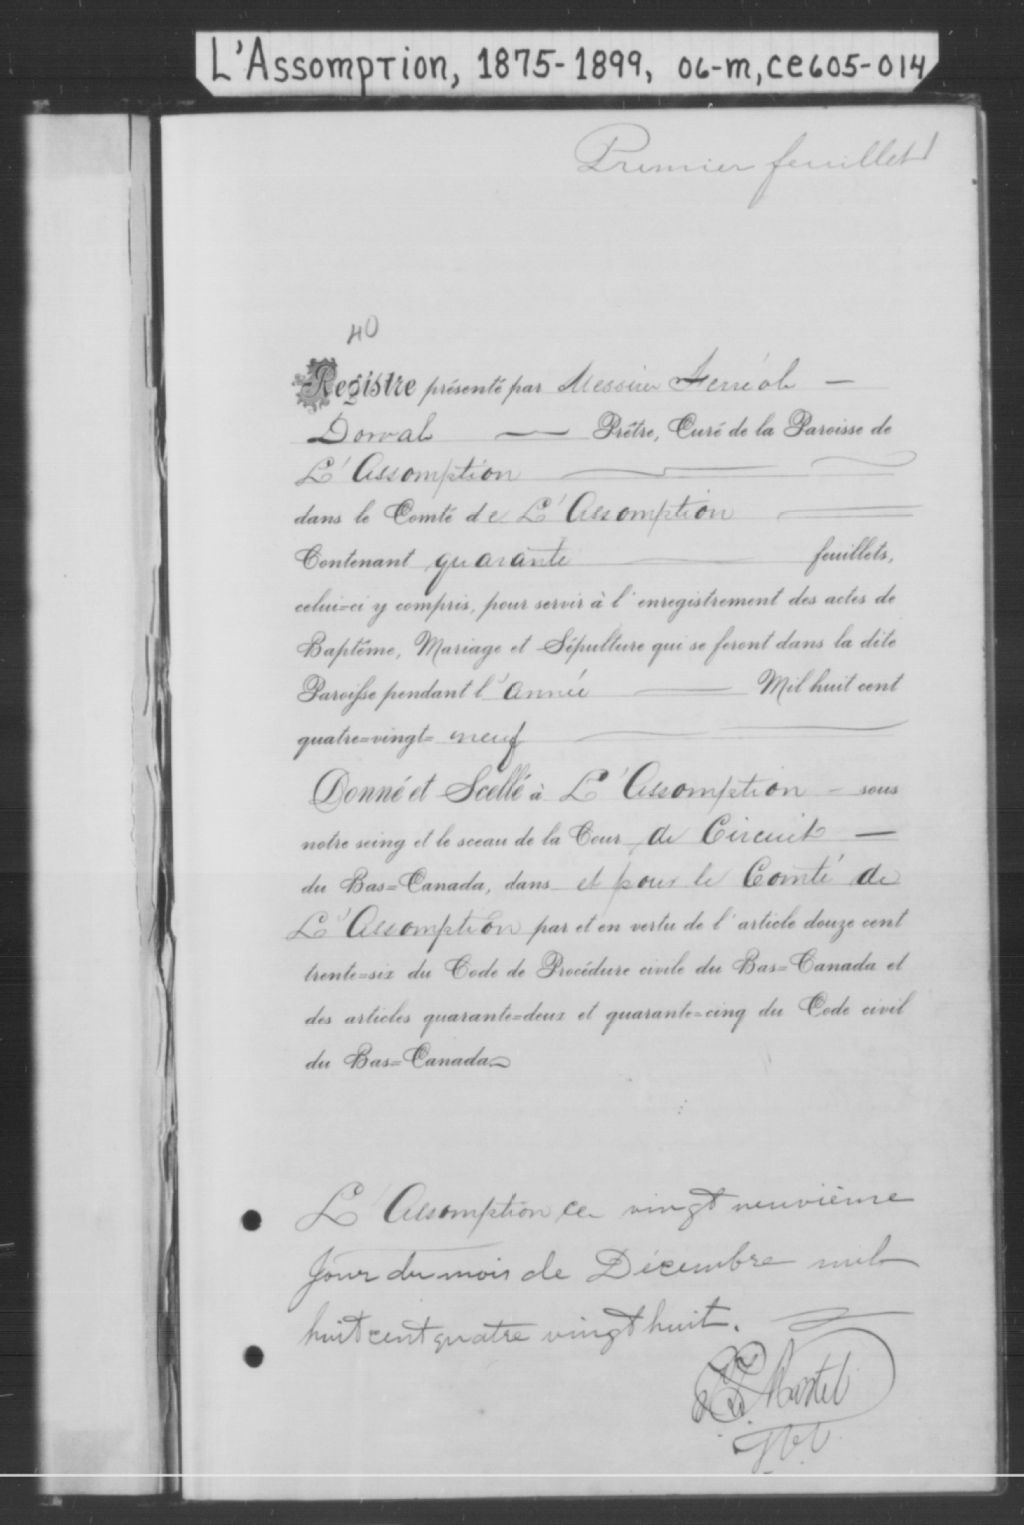 L'Assomption, 1875-1899, 06-m, ce605-014
Premier feuillet
40
Registre présenté par Messire Ferréol —
Dorval — Prêtre, Curé de la Paroisse de
L'Assomption
dans le Comté de L'Assomption
Contenant quarante feuillets,
celui=ci y compris, pour servir à l'enregistrement des actes de
Baptême, Mariage et Sépulture qui se feront dans la dite
Paroisse pendant l'année — Mil huit cent
quatre=vingt= neuf
Donné et Scellé à L'Assomption — sous
notre seing et le sceau de la Cour de Circuit —
du Bas=Canada, dans et pour le Comté de
L'Assomption par et en vertu de l'article douze cent
trente=six du Code de Procédure civile du Bas=Canada et
des articles quarante=deux et quarante=cinq du Code civil
du Bas=Canada
L'Assomption ce vingt neuvième
Jour du mois de Décembre mil
huit cent quatre vingt huit.
Martel